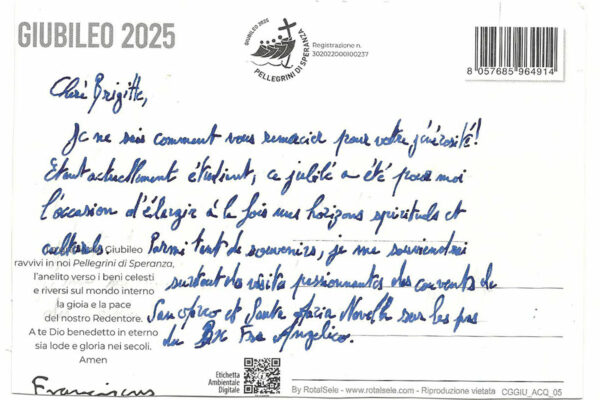 GIUBILEO 2025
GIUBILEO 2025
PELLEGRINI DI SPERANZA
Registrazione n.
302022000900237
8 057685 964914
Cher Brigitte,
Je ne sais comment vous remercier pour votre générosité!
Etant actuellement étudiant, ce jubilé a été pour moi
l'occasion d'élargir à la fois mes horizons spirituels et
culturels. Parmi tant de souvenirs, je me souviendrai
surtout des visites passionnantes des couvents de
San Marco et Santa Maria Novella sur les pas
du Bx Fra Angelico.
Giubileo
ravvivi in noi Pellegrini di Speranza,
l'anelito verso i beni celesti
e riversi sul mondo intero
la gioia e la pace
del nostro Redentore.
A te Dio benedetto in eterno
sia lode e gloria nei secoli.
Amen
Franciscus
Etichetta
Ambientale
Digitale
By RotalSele - www.rotalsele.com - Riproduzione vietata CGGIU_ACQ_05